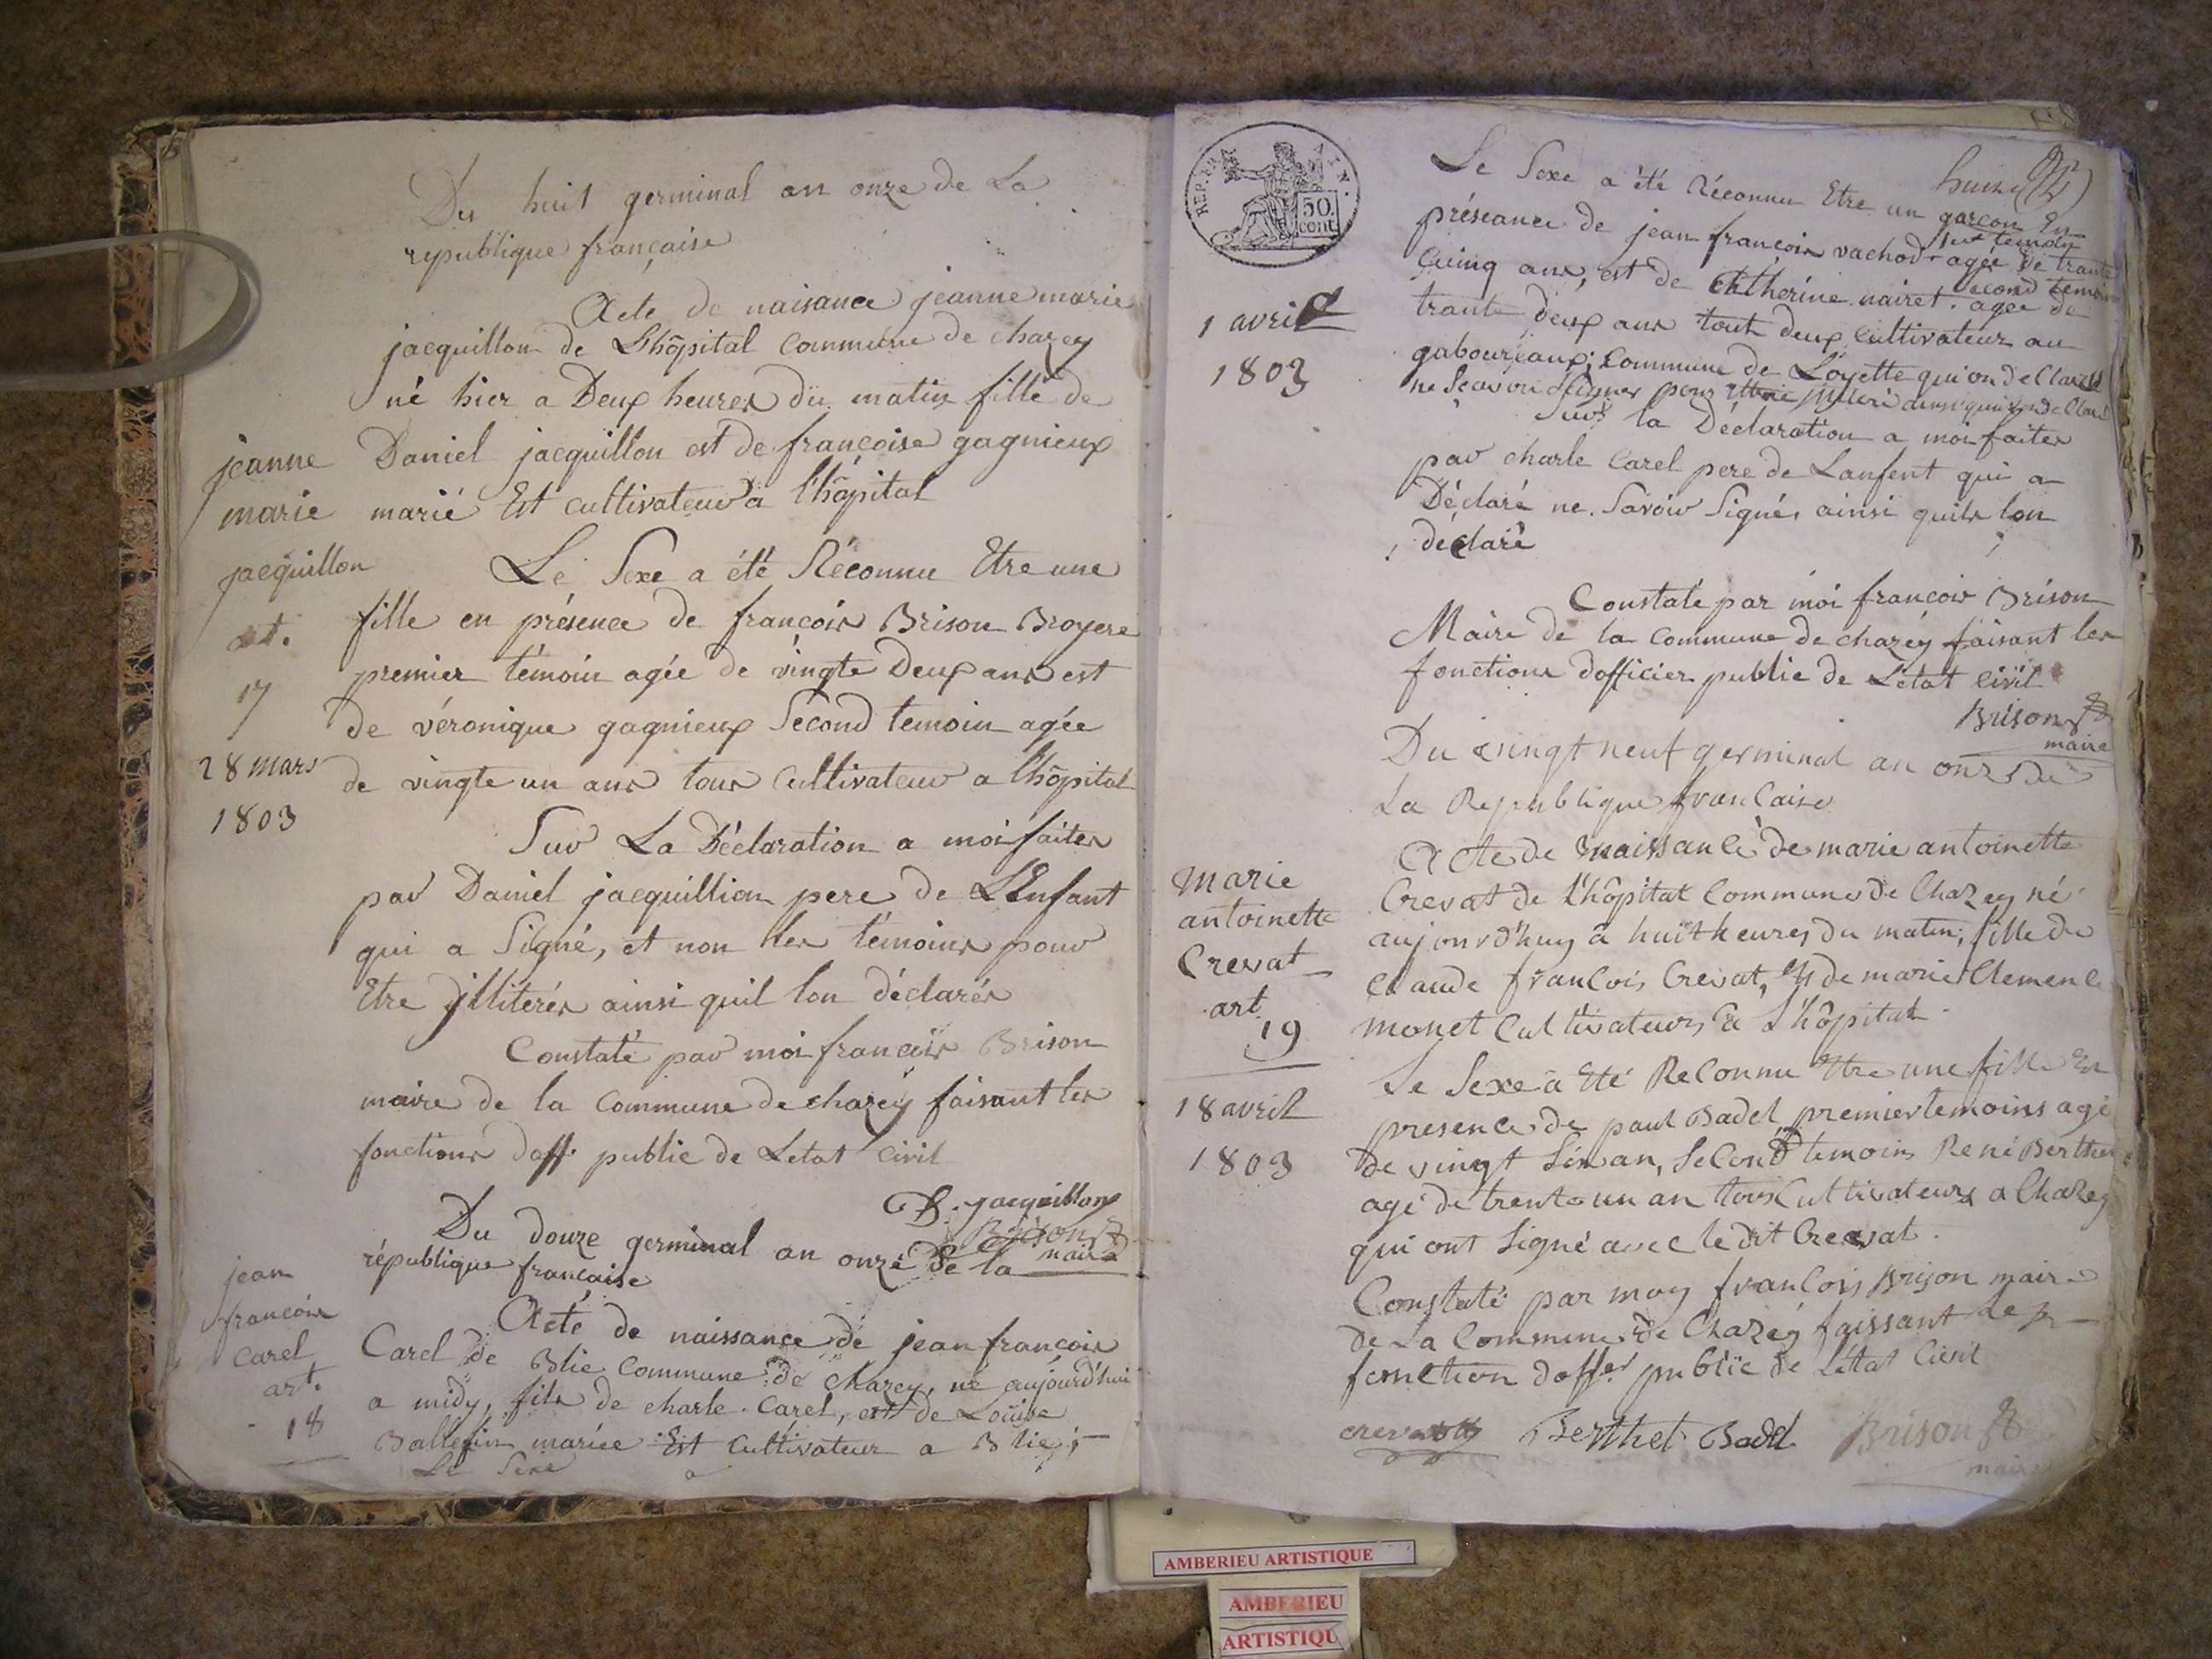 Du huit germinal an onze de La
republique française
Acte de naisance jeanne marie
jacquillon de Lhôpital commune de chazey
né hier a Deux heures du matin fille de
Daniel jacquillon est de françoise gagnieux
marié Est cultivateur a lhôpital
jeanne
marie
jacquillon
art.
17
28 mars
1803
Le Sexe a été Réconnu Etre une
fille en présence de françois Brison Broyere
premier témoin agée de vingte Deux ans est
de véronique gagnieux Sécond temoin agée
de vingte un ans tous cultivateur a lhôpital
Sur La Déclaration a moi faites
par Daniel jacquillion pere de LEnfant
qui a Signé, et non les témoins pour
Etre jllitérés ainsi quil lon déclarés
Constaté par moi françois Brison
maire de la commune de chazéy faisant les
fonctions doff. public de Letat Civil
D. jacquillon
Brison
maire
Du douze germinal an onze de la
république française
jean
françois
Carel
art.
18
Acte de naissance de jean françois
Carel de Blie Commune de chazey, né aujourd'hui
a midy, fils de charle Carel, est de Louise
Ballefin mariée Est Cultivateur a Blie;
Le Sexe a
REP. FRA
50
cent
1 avril
1803
Le Sexe a été Réconnu Etre un garçon En
préseance de jean françois vachod agée de trante
Cuinq ans, est de Catherine nairet. agée de
second temoin
trante deux ans tout deux Cultivateur au
gaboureaux; Commune de Loyette qui on déClarés
ne Scavoir Signer pour
Sur la Déclaration a moi faites
par charle Carel pere de Lanfent qui a
Déclaré ne Savoir Signés ainsi quils lon
déclaré
Constaté par moi françois Brison
Maire de la Commune de chazéy faisant les
fonctions dofficier public de Létat Civil
Brison
maire
Du vingt neuf germinal an onze de
La Republique franCaise
Marie
antoinette
Crevat
art.
19
18 avril
1803
Acte de naissanCe de marie antoinette
Crevat de Lhôpital Commune de Chazey né
aujourd'huy à huit heures du matin, fille de
Claude franCois Crevat, et de marie ClemenCe
monet Cultivateurs à L'hôpital
Le Sexe a Eté ReConnu Etre une fille En
presenCe de paul Badel premier temoins agé
de vingt Six an, SeCond temoins René Berthet
agé de trente un an tous Cultivateurs a Chazey
qui ont Signé avec le dit Crevat.
Constaté par moy franCois Brison maire
de La Commune de Chazéy faissant Les
fonction doffer public de Létat Civil
crevat Berthet Badel Brison
maire
AMBERIEU ARTISTIQUE
AMBERIEU
ARTISTIQU